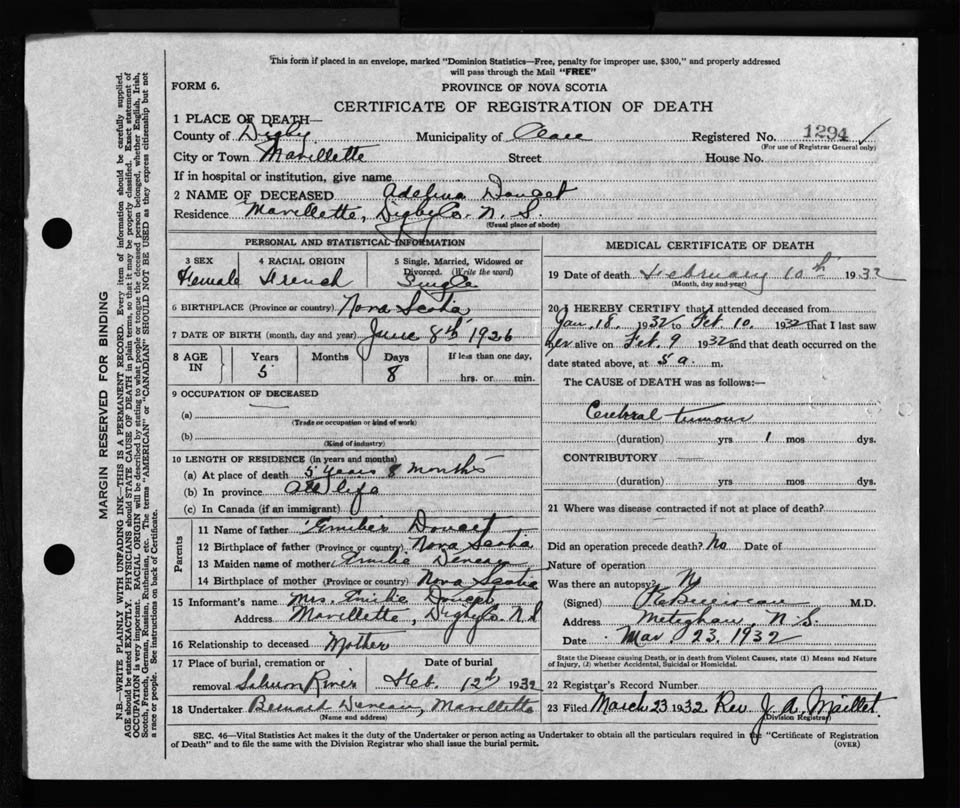 This form if placed in an envelope, marked "Dominion Statistics—Free, penalty for improper use, $300," and properly addressed
will pass through the Mail "FREE"
FORM 6.
PROVINCE OF NOVA SCOTIA
CERTIFICATE OF REGISTRATION OF DEATH
1 PLACE OF DEATH—
County of Digby Municipality of Clare Registered No. 1294
(For use of Registrar General only)
City or Town Mavillette Street House No.
If in hospital or institution, give name
2 NAME OF DECEASED Adelina Doucet
Residence Mavillette, Digby Co. N. S.
(Usual place of abode)
PERSONAL AND STATISTICAL INFORMATION
3 SEX 4 RACIAL ORIGIN 5 Single, Married, Widowed or
Divorced. (Write the word)
Female French Single
6 BIRTHPLACE (Province or country) Nova Scotia
7 DATE OF BIRTH (month, day and year) June 8th 1926
8 AGE IN Years Months Days If less than one day,
5 8 hrs. or min.
9 OCCUPATION OF DECEASED
(a)
(Trade or occupation or kind of work)
(b)
(Kind of industry)
10 LENGTH OF RESIDENCE (in years and months)
(a) At place of death 5 years 8 months
(b) In province All life
(c) In Canada (if an immigrant)
Parents
11 Name of father Doucet
12 Birthplace of father (Province or country) Nova Scotia
13 Maiden name of mother Emilie Deveau
14 Birthplace of mother (Province or country) Nova Scotia
15 Informant's name Mrs. Emilie Doucet
Address Mavillette, Digby Co. N S
16 Relationship to deceased Mother
17 Place of burial, cremation or Date of burial
removal Salmon River Feb. 12th 1932
18 Undertaker Bernard Deveau, Mavillette
(Name and address)
MEDICAL CERTIFICATE OF DEATH
19 Date of death February 10th 1932
(Month, day and year)
20 I HEREBY CERTIFY that I attended deceased from
Jan. 18. 1932 to Feb. 10. 1932 that I last saw
her alive on Feb. 9 1932 and that death occurred on the
date stated above, at 5 a. m.
The CAUSE of DEATH was as follows:—
Cerebral tumour
(duration) yrs 1 mos dys.
CONTRIBUTORY
(duration) yrs. mos. dys.
21 Where was disease contracted if not at place of death?
Did an operation precede death? No Date of
Nature of operation
Was there an autopsy? No
(Signed) M.D.
Address Meteghan, N. S.
Date Mar. 23. 1932
State the Disease causing Death, or in death from Violent Causes, state (1) Means and Nature
of Injury, (2) whether Accidental, Suicidal or Homicidal.
22 Registrar's Record Number
23 Filed March 23 1932. Rev. J. A. Maillet.
(Division Registrar)
SEC. 46—Vital Statistics Act makes it the duty of the Undertaker or person acting as Undertaker to obtain all the particulars required in the "Certificate of Registration
of Death" and to file the same with the Division Registrar who shall issue the burial permit.
(OVER)
MARGIN RESERVED FOR BINDING
N.B.—WRITE PLAINLY WITH UNFADING INK—THIS IS A PERMANENT RECORD. Every item of information should be carefully supplied.
AGE should be stated EXACTLY. PHYSICIANS should STATE CAUSE OF DEATH in plain terms, so that it may be properly classified. Exact statement of
OCCUPATION is very important. RACIAL ORIGIN will be described by stating to what people or tongue the deceased person belonged, whether English, Irish,
Scotch, French, German, Russian, Ruthenian, etc. The terms "AMERICAN" or "CANADIAN" SHOULD NOT BE USED as they express citizenship but not
a race or people. See instructions on back of Certificate.